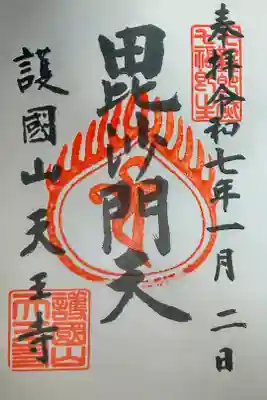 奉拝令和七年一月二日
毘沙門天
護國山天王寺
護國山
天王寺